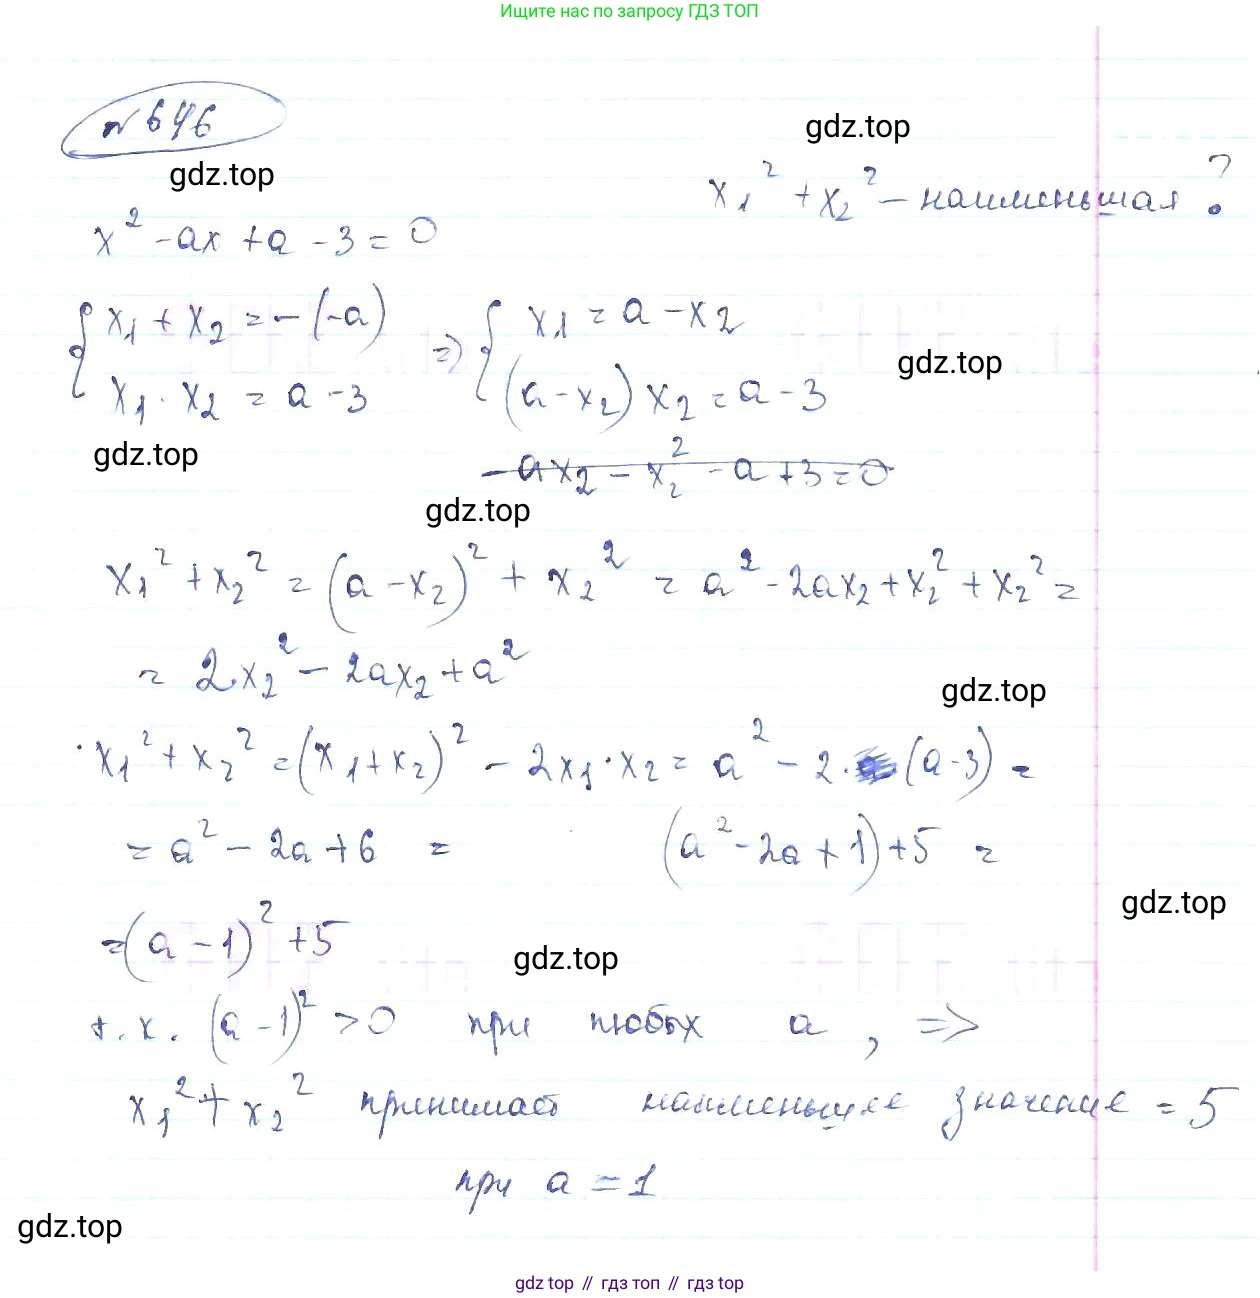 Ищите нас по запросу ГДЗ ТОП
№646
gdz.top
gdz.top
x₁² + x₂² – наименьшая ?
x² - ax + a - 3 = 0
{ x₁ + x₂ = -(-a) => { x₁ = a - x₂
gdz.top
x₁ · x₂ = a - 3 (a - x₂) x₂ = a - 3
gdz.top
- ax₂ - x₂² - a + 3 = 0
gdz.top
x₁² + x₂² = (a - x₂)² + x₂² = a² - 2ax₂ + x₂² + x₂² =
= 2x₂² - 2ax₂ + a²
gdz.top
x₁² + x₂² = (x₁ + x₂)² - 2x₁·x₂ = a² - 2·(a-3) =
= a² - 2a + 6 = (a² - 2a + 1) + 5 =
gdz.top
= (a - 1)² + 5
gdz.top
т.к. (a - 1)² > 0 при любых a, =>
x₁² + x₂² принимает наименьшее значение = 5
при a = 1
gdz.top
gdz top // гдз топ // gdz top